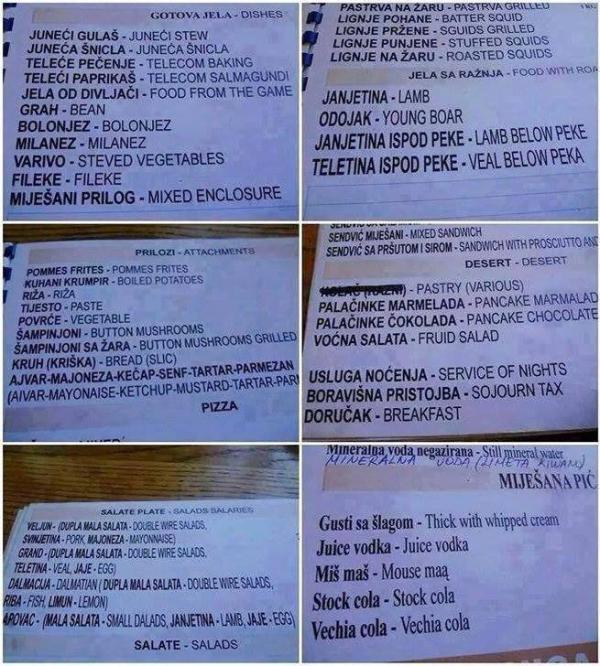 GOTOVA JELA - DISHES
JUNEĆI GULAŠ - JUNEĆI STEW
JUNEĆA ŠNICLA - JUNEĆA ŠNICLA
TELEĆE PEČENJE - TELECOM BAKING
TELEĆI PAPRIKAŠ - TELECOM SALMAGUNDI
JELA OD DIVLJAČI - FOOD FROM THE GAME
GRAH - BEAN
BOLONJEZ - BOLONJEZ
MILANEZ - MILANEZ
VARIVO - STEVED VEGETABLES
FILEKE - FILEKE
MIJEŠANI PRILOG - MIXED ENCLOSURE
PASTRVA NA ŽARU - PASTRVA GRILLED
LIGNJE POHANE - BATTER SQUID
LIGNJE PRŽENE - SGUIDS GRILLED
LIGNJE PUNJENE - STUFFED SQUIDS
LIGNJE NA ŽARU - ROASTED SQUIDS
JELA SA RAŽNJA - FOOD WITH ROA
JANJETINA - LAMB
ODOJAK - YOUNG BOAR
JANJETINA ISPOD PEKE - LAMB BELOW PEKE
TELETINA ISPOD PEKE - VEAL BELOW PEKA
PRILOZI - ATTACHMENTS
POMMES FRITES - POMMES FRITES
KUHANI KRUMPIR - BOILED POTATOES
RIŽA - RIŽA
TIJESTO - PASTE
POVRĆE - VEGETABLE
ŠAMPINJONI - BUTTON MUSHROOMS
ŠAMPINJONI SA ŽARA - BUTTON MUSHROOMS GRILLED
KRUH (KRIŠKA) - BREAD (SLIC)
AJVAR-MAJONEZA-KEĆAP-SENF-TARTAR-PARMEZAN
(AIVAR-MAYONAISE-KETCHUP-MUSTARD-TARTAR-PAR
PIZZA
SENDVIČ MIJEŠANI - MIXED SANDWICH
SENDVIČ SA PRŠUTOM I SIROM - SANDWICH WITH PROSCIUTTO AND
DESERT - DESERT
- PASTRY (VARIOUS)
PALAČINKE MARMELADA - PANCAKE MARMALAD
PALAČINKE ČOKOLADA - PANCAKE CHOCOLATE
VOĆNA SALATA - FRUID SALAD
USLUGA NOĆENJA - SERVICE OF NIGHTS
BORAVIŠNA PRISTOJBA - SOJOURN TAX
DORUČAK - BREAKFAST
SALATE PLATE - SALADS SALARIES
VELJUN - (DUPLA MALA SALATA - DOUBLE WIRE SALADS,
SWNJETINA - PORK, MAJONEZA - MAYONNAISE)
GRAND - (DUPLA MALA SALATA - DOUBLE WIRE SALADS,
TELETINA - VEAL, JAJE - EGG)
DALMACIJA - DALMATIAN ( DUPLA MALA SALATA - DOUBLE WIRE SALADS,
RIBA - FISH, LIMUN - LEMON)
AROVAC - (MALA SALATA - SMALL DALADS, JANJETINA - LAMB, JAJE - EGG)
SALATE - SALADS
Mineralna voda negazirana - Still mineral water
MINERALNA VODA (LIMETA KIWANO)
MIJEŠANA PIĆ
Gusti sa šlagom - Thick with whipped cream
Juice vodka - Juice vodka
Miš maš - Mouse maą
Stock cola - Stock cola
Vechia cola - Vechia cola